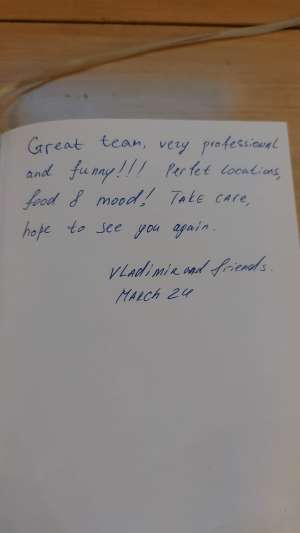 Great team, very professional
and funny!!! Perfet locations,
food & mood! TAKE CARE,
hope to see you again.
VLADIMIR and friends.
MARCH 24